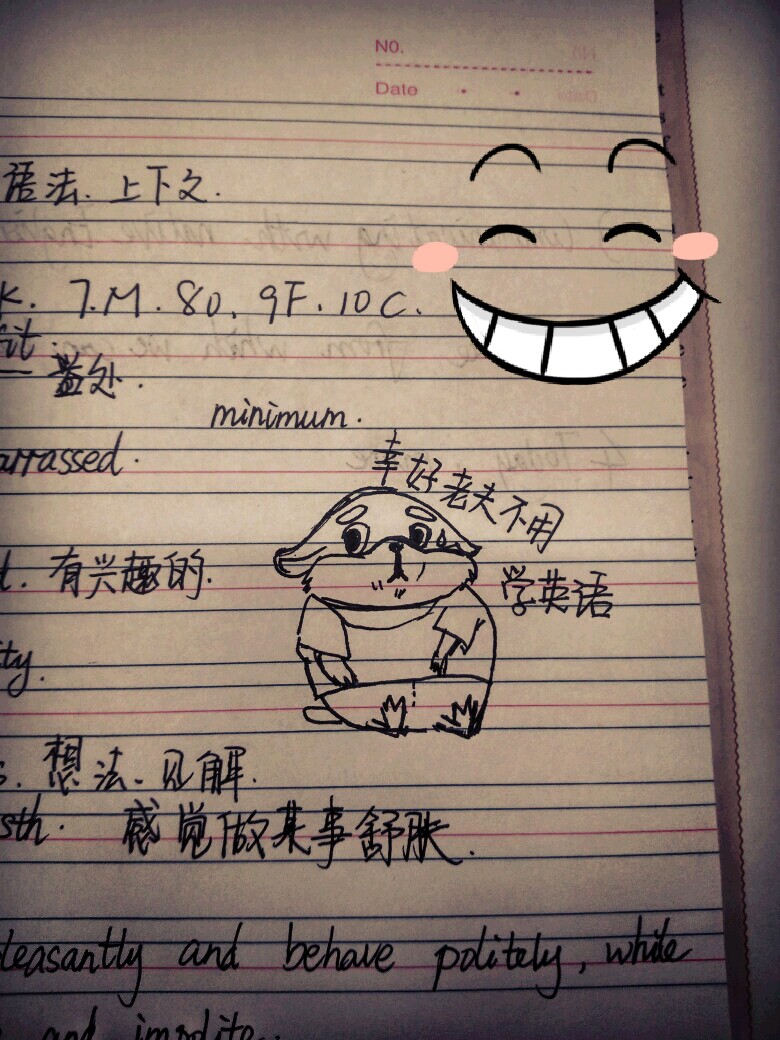 NO.
Date
语法. 上下文.
K. 7.M. 80. 9F. 10C.
fit.
益处.
minimum.
arrassed.
幸好老夫不用
t. 有兴趣的.
学英语
ty.
s. 想法. 见解.
sth. 感觉做某事舒肤.
leasantly and behave politely, while
and impolite.